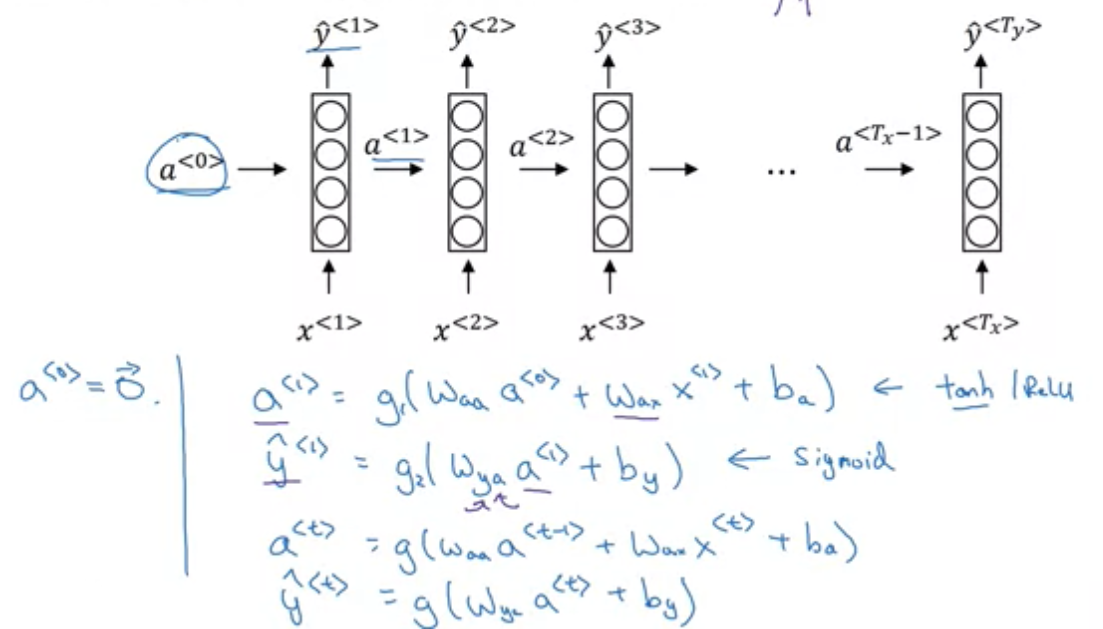 ŷ<1> ŷ<2> ŷ<3> ŷ<Ty>
a<0> a<1> a<2> ... a<Tx−1>
x<1> x<2> x<3> x<Tx>
a<0> = 0⃗.
a<1> = g₁(Waa a<0> + Wax x<1> + ba) ← tanh / ReLU
ŷ<1> = g₂(Wya a<1> + by) ← sigmoid
a<t> = g(Waa a<t-1> + Wax x<t> + ba)
ŷ<t> = g(Wya a<t> + by)